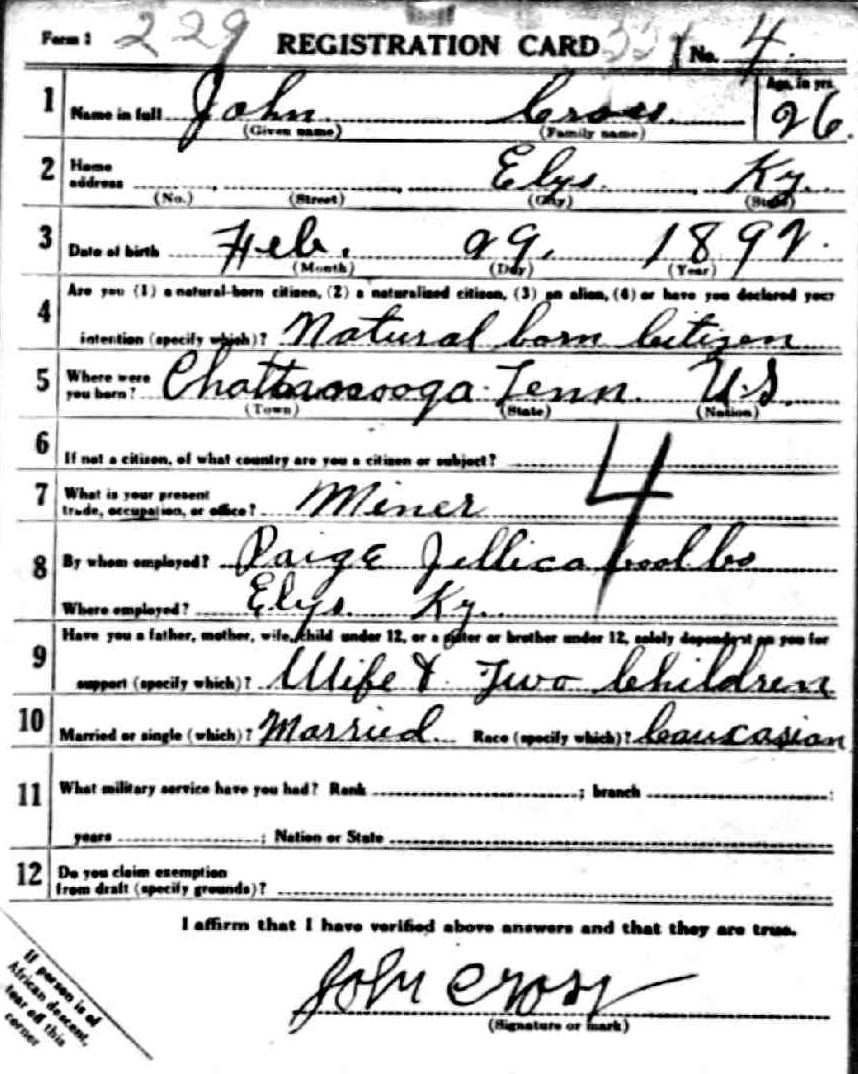 Form 1 229 REGISTRATION CARD No. 4.
1 Name in full John Cross Age, in yrs. 26.
(Given name) (Family name)
2 Home address Elys. Ky.
(No.) (Street) (City) (State)
3 Date of birth Feb. 29, 1892.
(Month) (Day) (Year)
4 Are you (1) a natural-born citizen, (2) a naturalized citizen, (3) an alien, (4) or have you declared your
intention (specify which)? Natural born Citizen
5 Where were you born? Chattanooga Tenn. U.S.
(Town) (State) (Nation)
6 If not a citizen, of what country are you a citizen or subject?
4
7 What is your present trade, occupation, or office? Miner
8 By whom employed? Paige Jellico Cool Co
Where employed? Elys. Ky.
9 Have you a father, mother, wife, child under 12, or a sister or brother under 12, solely dependent on you for
support (specify which)? Wife & Two Children
10 Married or single (which)? Married Race (specify which)? Caucasian
11 What military service have you had? Rank ; branch
years ; Nation or State
12 Do you claim exemption from draft (specify grounds)?
I affirm that I have verified above answers and that they are true.
John Cross
(Signature or mark)
If person is of
African descent,
tear off this
corner